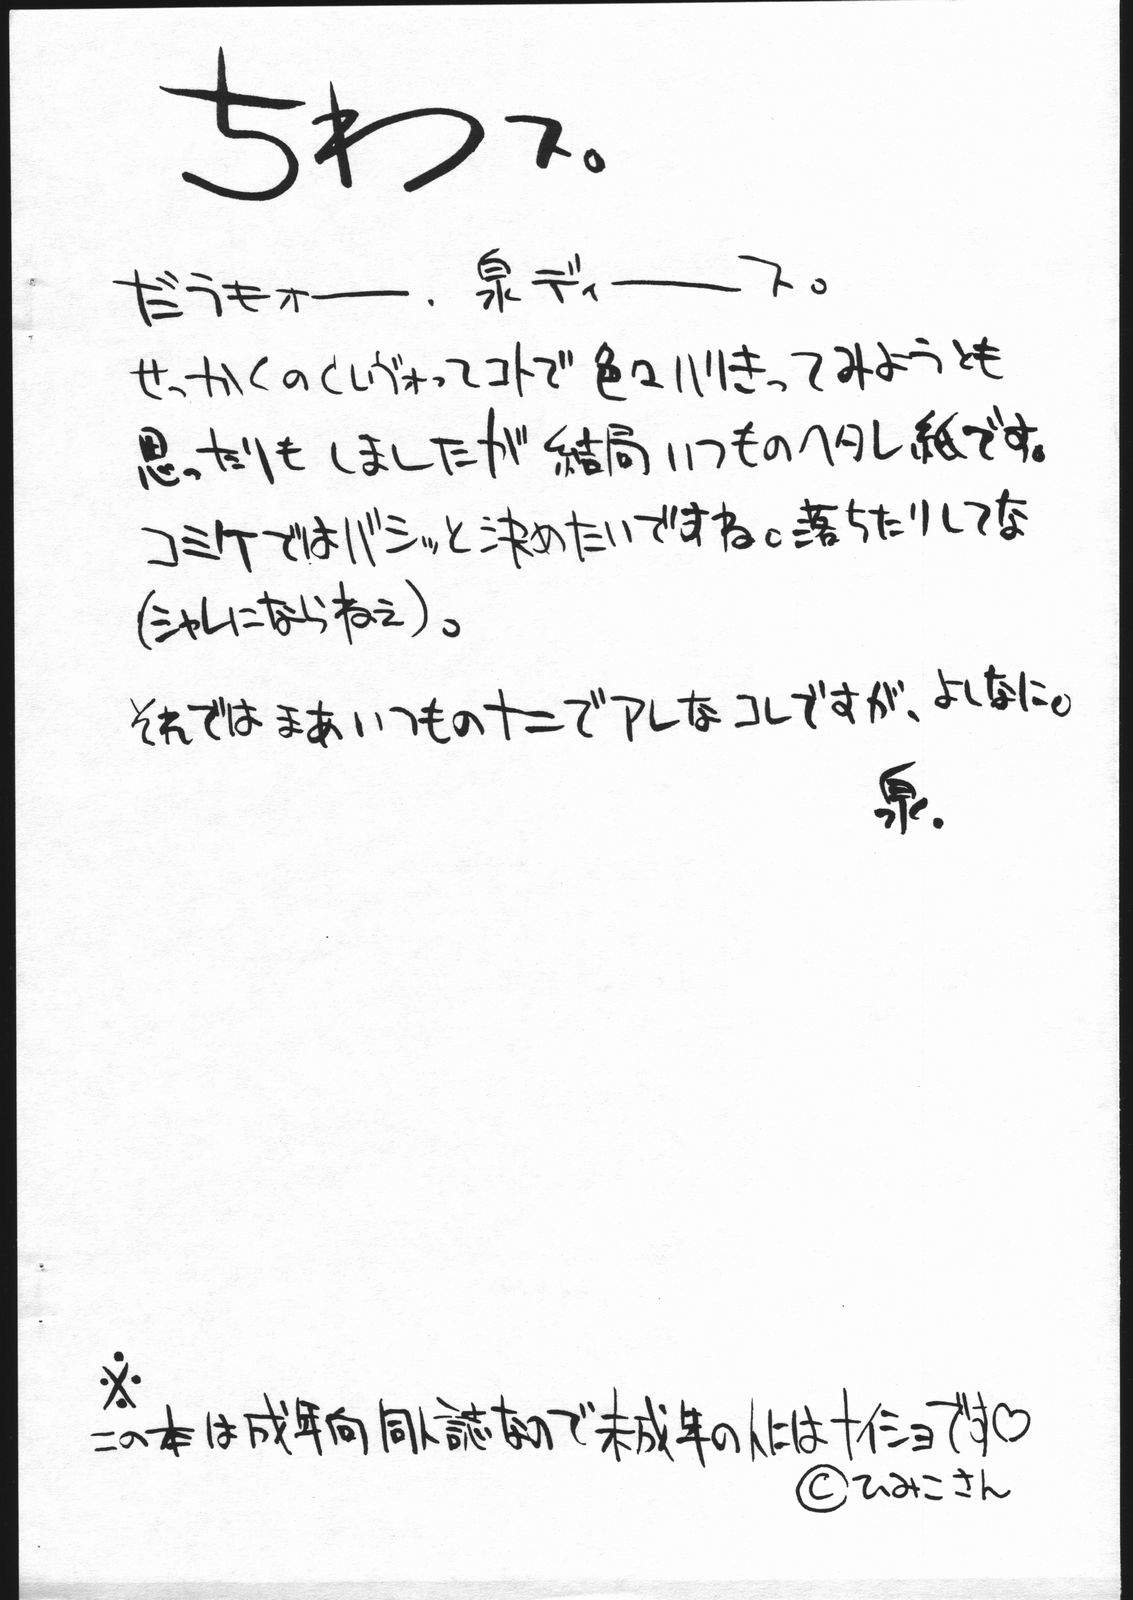 ちわス。
だうもォー、泉ディース。
せっかくのくレヴォってコトで色々ハリきってみようとも
思っだりもしましたが結局いつものヘタレ紙です。
コミケではバシッと決めたいですね。落ちたりしてな
(シャレにならねえ)。
それではまあいつもの十ニでアレなコレですが、よしなに。
泉.
※
この本は成年向同人誌なので未成年の人にはナイショです♡
©ひみこさん